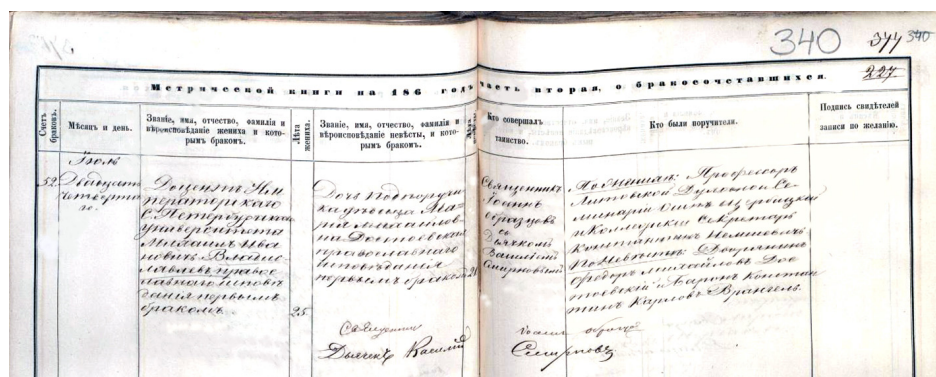 340 377 340
227
Метрической книги на 186 годъ часть вторая, о бракосочетавшихся.
Счетъ браковъ.
Мѣсяцъ и день.
Званіе, имя, отчество, фамилія и вѣроисповѣданіе жениха и которымъ бракомъ.
Лѣта жениха.
Званіе, имя, отчество, фамилія и вѣроисповѣданіе невѣсты, и которымъ бракомъ.
Кто совершалъ таинство.
Кто были поручители.
Подпись свидѣтелей записи по желанію.
Іюль
52. Двадцать
четверта
го.
Доцентъ Им
ператорскаго
С. Петербургскаго
университета
Михаилъ Ива
новичъ Владис
лавлевъ право
славнаго испов
данія первымъ
бракомъ.
25.
Дочь Подпоручи
ка дѣвица Ма
рія Михайлов
на Достоевская
православнаго
исповѣданія
первымъ бракомъ
21
Священникъ
Іоаннъ
Образцовъ
съ
Дьячкомъ
Василіемъ
Смирновымъ
По женихѣ: Профессоръ
Литовской Духовной Се
минаріи
и Коллежскій Секретарь
Константинъ
По невѣстѣ: Дворянинъ
Федоръ Михайловъ Дос
тоевскій и Баронъ Констан
тинъ Карловъ Врангель.
Священникъ Іоаннъ Образцо
Дьячекъ Василій Смирновъ